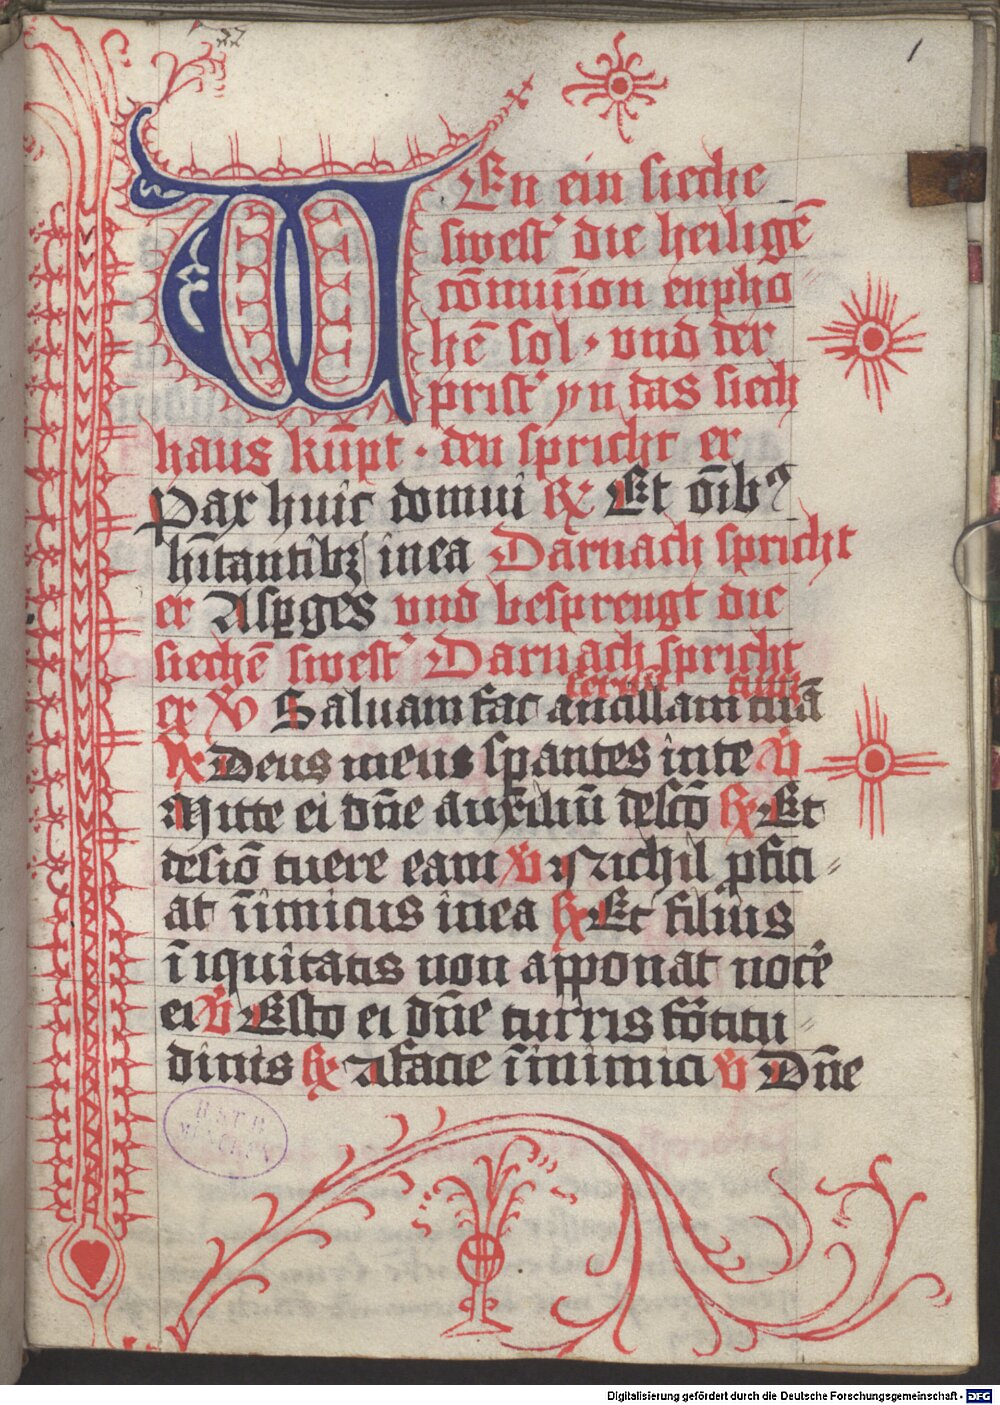 1
WEn ein sieche
swest' die heiligē
cōmunīon enpha
hē sol · vnd der
prist' yn das siech
haus kūpt · den spricht er
Pax huic domui ℟ Et oībꝰ
hītantibꝫ in ea Darnach spricht
er Aspges vnd besprengt die
siechē swest' Darnach spricht
seruū tuum
er ℣ Saluam fac ancillam tuā
℟ Deus meus sꝑantes in te ℣
Mitte ei dn̄e auxiliū de scō ℟ Et
de siō tuere eam ℣ Nichil ꝓfici⸗
at īimicus in ea ℟ Et filius
īiquitatis non apponat nocē
ei ℣ Esto ei dn̄e turris fortitu⸗
dinis ℟ A facie īimici ℣ Dn̄e
BSTB
MÜNCHEN
Digitalisierung gefördert durch die Deutsche Forschungsgemeinschaft - DFG